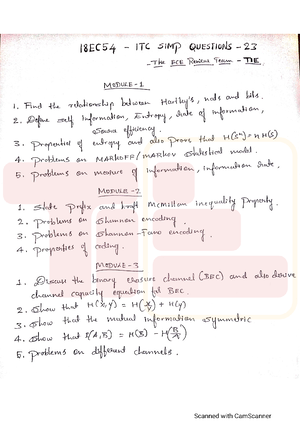 18EC54 - ITC SIMP QUESTIONS - 23
- The ECE Review Team - TIE
MODULE - 1
1. Find the relationship between Hartley's, nats and bits.
2. Define self Information, Entropy, Rate of information,
Source efficiency.
3. Properties of entropy and also prove that H(Sⁿ) = n H(S)
4. Problems on MARKOFF/MARKOV Statistical model.
5. Problems on measure of information, information rate.
MODULE - 2
1. State Prefix and Kraft Mcmillan inequality Property.
2. Problems on Shannon encoding.
3. Problems on Shannon - Fano encoding.
4. Properties of coding.
MODULE - 3
1. Discuss the binary erasure channel (BEC) and also derive
channel capacity equation for BEC.
2. Show that H(X,Y) = H(X/Y) + H(Y)
3. Show that the mutual information symmetric
4. Show that I(A,B) = H(B) - H(B/A)
5. Problems on different channels.
Scanned with CamScanner